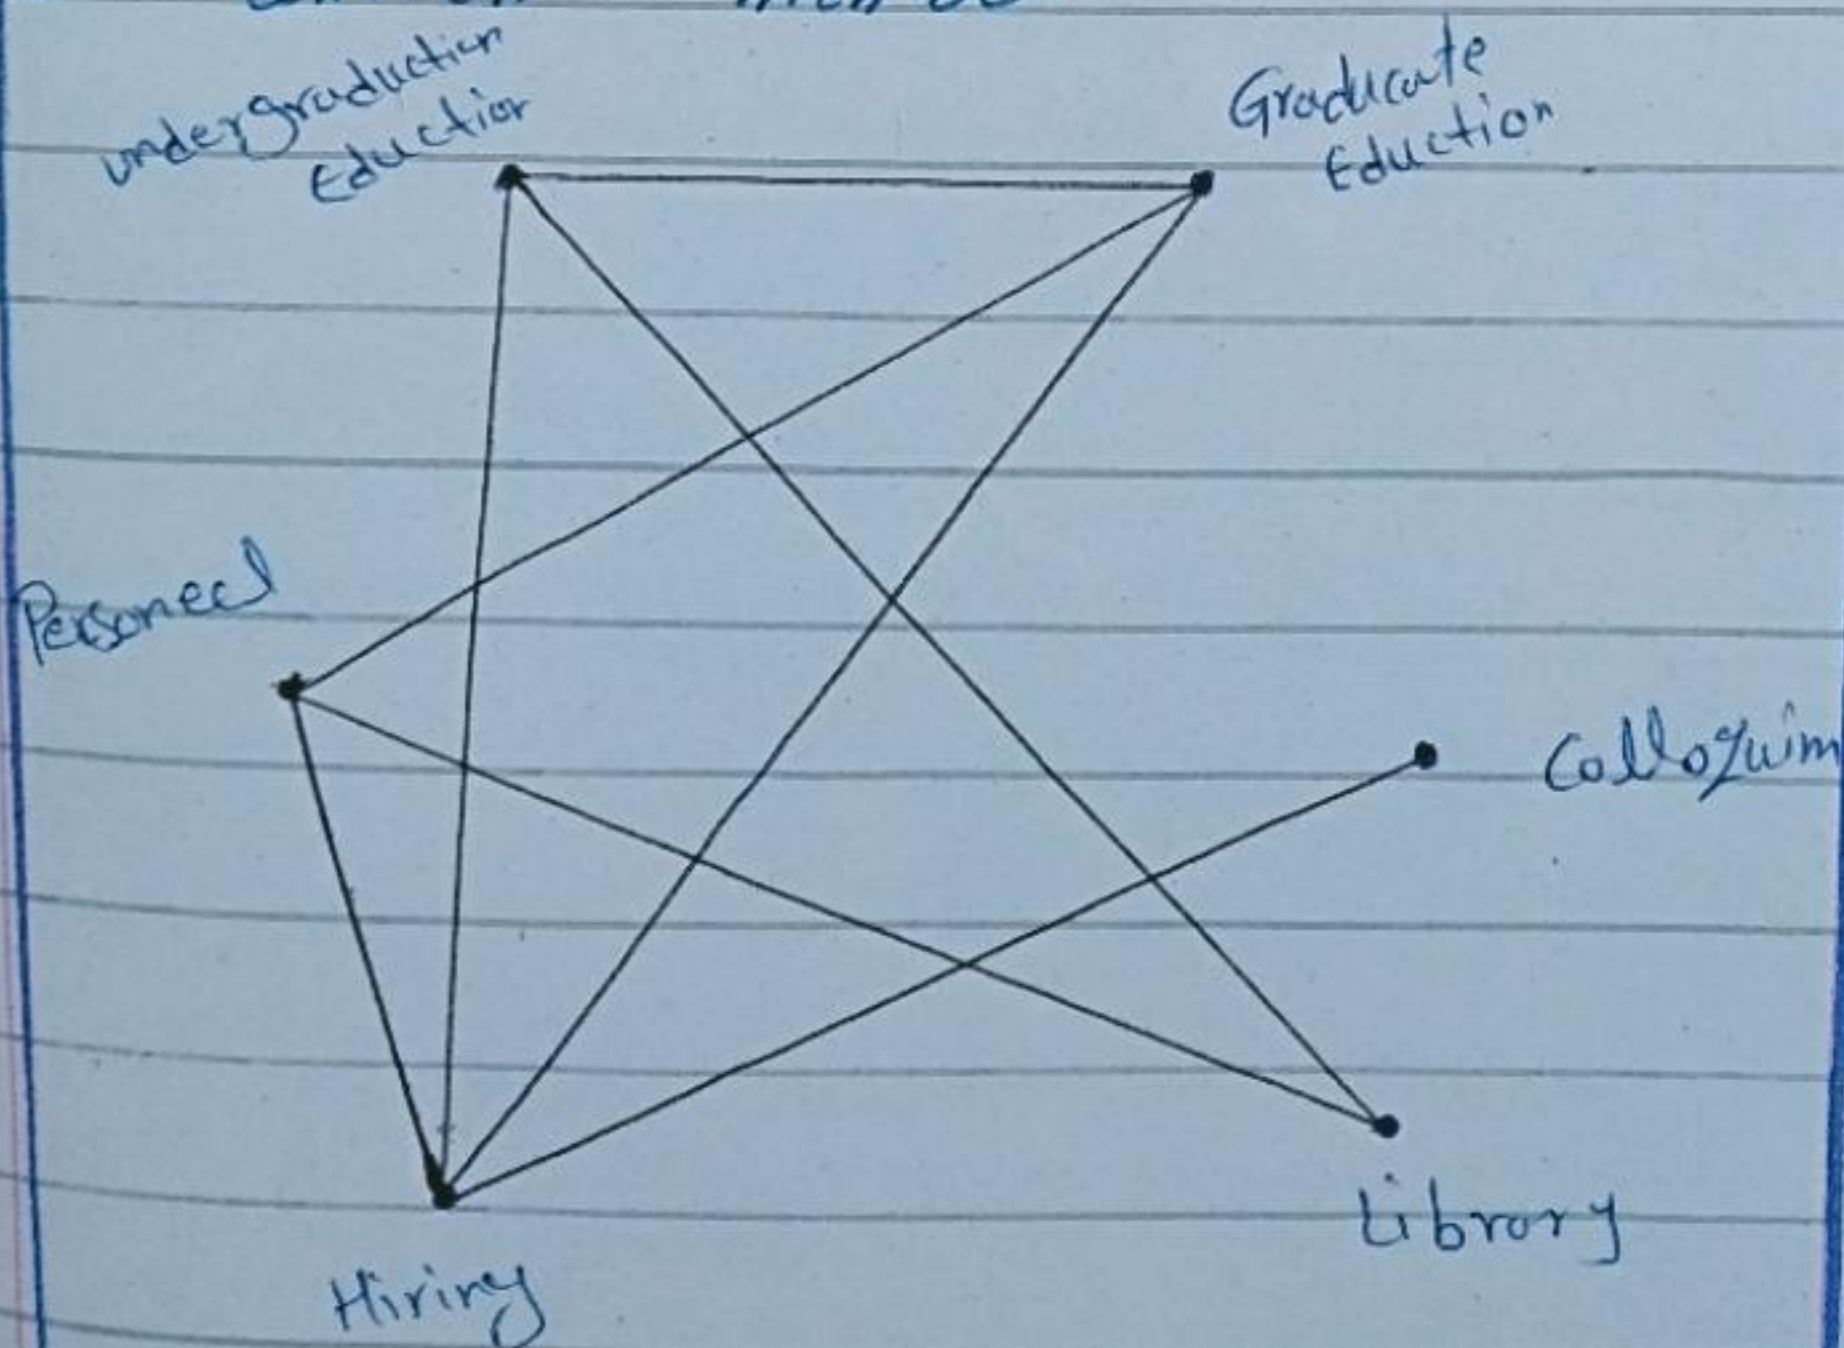 undergraduction
Eduction
Graducate
Eduction
Personeel
Colloquim
Library
Hiring